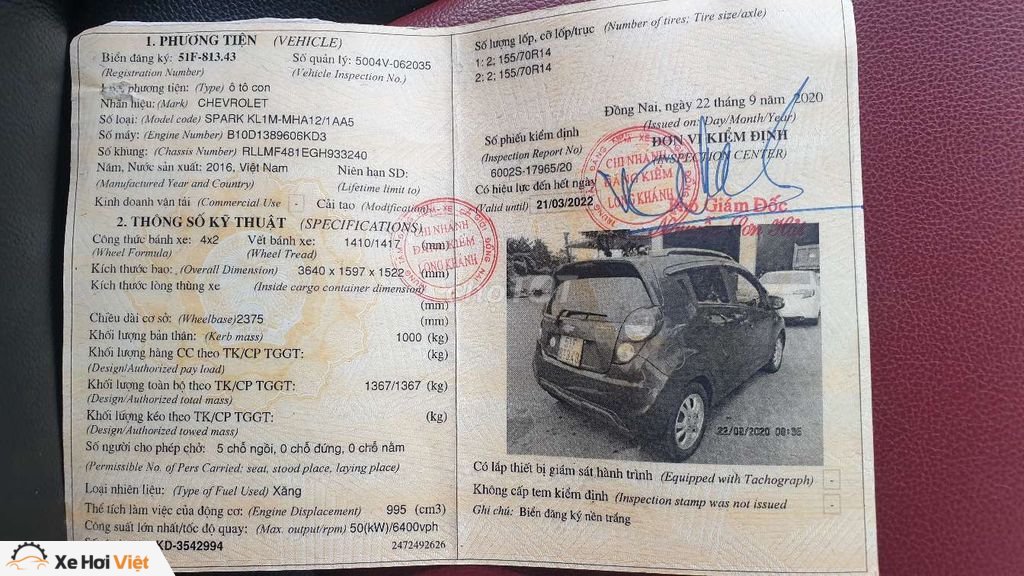 1. PHƯƠNG TIỆN (VEHICLE)
Biển đăng ký: 51F-813.43 Số quản lý: 5004V-062035
(Registration Number) (Vehicle Inspection No.)
phương tiện: (Type) ô tô con
Nhãn hiệu: (Mark) CHEVROLET
Số loại: (Model code) SPARK KL1M-MHA12/1AA5
Số máy: (Engine Number) B10D1389606KD3
Số khung: (Chassis Number) RLLMF481EGH933240
Năm, Nước sản xuất: 2016, Việt Nam Niên hạn SD:
(Manufactured Year and Country) (Lifetime limit to)
Kinh doanh vận tải (Commercial Use - Cải tạo (Modification)
2. THÔNG SỐ KỸ THUẬT (SPECIFICATIONS)
Công thức bánh xe: 4x2 Vết bánh xe: 1410/1417 (mm)
(Wheel Formula) (Wheel Tread)
Kích thước bao: (Overall Dimension) 3640 x 1597 x 1522 (mm)
Kích thước lòng thùng xe (Inside cargo container dimension)
(mm)
Chiều dài cơ sở: (Wheelbase)2375 (mm)
Khối lượng bản thân: (Kerb mass) 1000 (kg)
Khối lượng hàng CC theo TK/CP TGGT: (kg)
(Design/Authorized pay load)
Khối lượng toàn bộ theo TK/CP TGGT: 1367/1367 (kg)
(Design/Authorized total mass)
Khối lượng kéo theo TK/CP TGGT: (kg)
(Design/Authorized towed mass)
Số người cho phép chở: 5 chỗ ngồi, 0 chỗ đứng, 0 chỗ nằm
(Permissible No. of Pers Carried: seat, stood place, laying place)
Loại nhiên liệu: (Type of Fuel Used) Xăng
Thể tích làm việc của động cơ: (Engine Displacement) 995 (cm3)
Công suất lớn nhất/tốc độ quay: (Max. output/rpm) 50(kW)/6400vph
KD-3542994 2472492626
Số lượng lốp, cỡ lốp/trục (Number of tires; Tire size/axle)
1: 2; 155/70R14
2: 2; 155/70R14
Đồng Nai, ngày 22 tháng 9 năm 2020
(Issued on: Day/Month/Year)
Số phiếu kiểm định ĐƠN VỊ KIỂM ĐỊNH
(Inspection Report No) (INSPECTION CENTER)
6002S-17965/20
Có hiệu lực đến hết ngày
(Valid until) 21/03/2022
CHI NHÁNH
ĐĂNG KIỂM
LONG KHÁNH
Phó Giám Đốc
CHI NHÁNH
ĐĂNG KIỂM
LONG KHÁNH
22/09/2020 08:35
Có lắp thiết bị giám sát hành trình (Equipped with Tachograph) -
Không cấp tem kiểm định (Inspection stamp was not issued -
Ghi chú: Biển đăng ký nền trắng
Xe Hơi Việt